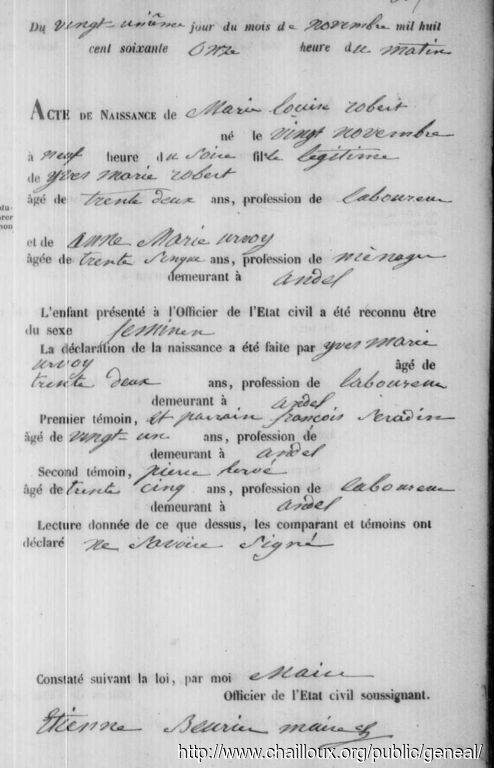 Du vingt unième jour du mois de novembre mil huit
cent soixante onze heure du matin
ACTE DE NAISSANCE de Marie louise robert
né le vingt novembre
à neuf heure du soire fille legitime
de yves marie robert
âgé de trente deux ans, profession de laboureur
et de anne Marie urvoy
âgée de trente sinque ans, profession de ménager
demeurant à andel
L'enfant présenté à l'Officier de l'Etat civil a été reconnu être
du sexe feminen
La déclaration de la naissance a été faite par yves marie
urvoy âgé de
trente deux ans, profession de laboureur
demeurant à andel
Premier témoin, et parrain françois
âgé de vingt un ans, profession de
demeurant à andel
Second témoin, pierre hervé
âgé de trente cinq ans, profession de laboureur
demeurant à andel
Lecture donnée de ce que dessus, les comparant et témoins ont
déclaré ne savoire signé
Constaté suivant la loi, par moi Maire
Officier de l'Etat civil soussignant.
Etienne Beurier maire
http://www.chailloux.org/public/geneal/